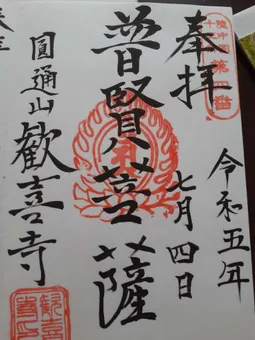 第四番
奉拝
令和五年
七月四日
普賢菩薩
圓通山
歓喜寺